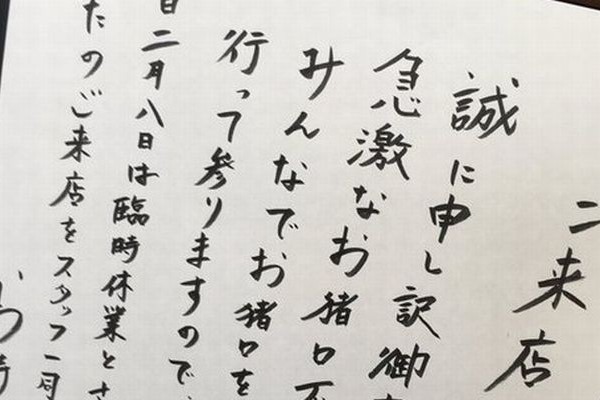 ご来店
誠に申し訳御
急激なお猪口
みんなでお猪口を
行って参りますので、
日二月八日は臨時休業とさ
たのご来店をスタッフ一同
お待